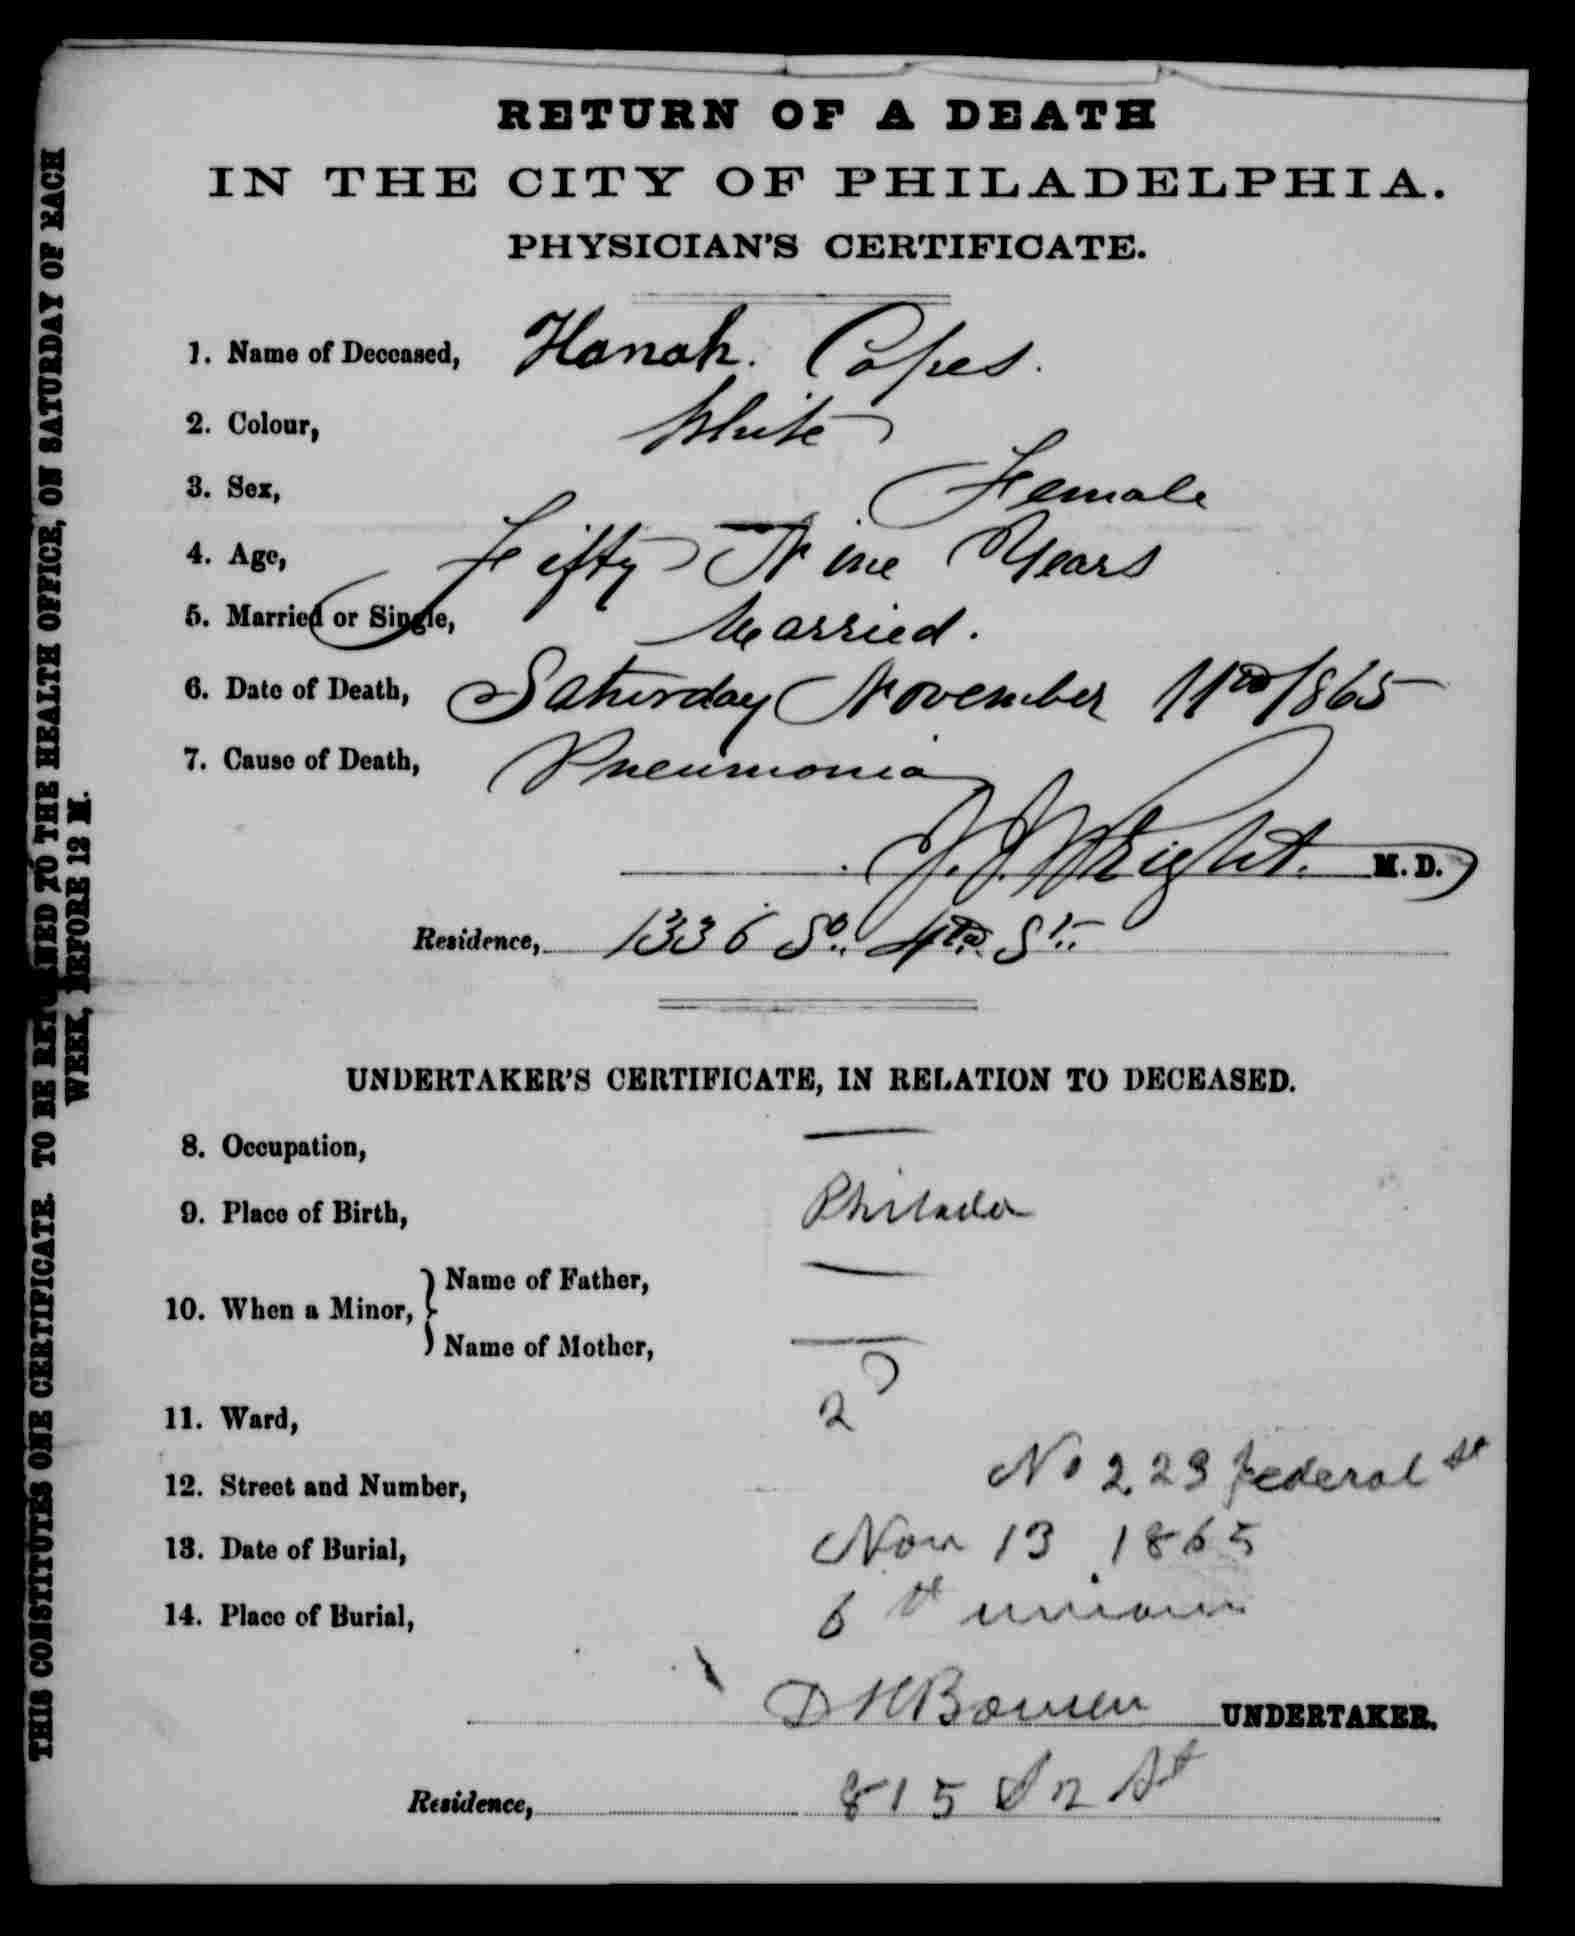 RETURN OF A DEATH
IN THE CITY OF PHILADELPHIA.
PHYSICIAN'S CERTIFICATE.
1. Name of Deceased, Hanah. Copes.
2. Colour, White
3. Sex, Female
4. Age, Fifty Nine Years
5. Married or Single, Married.
6. Date of Death, Saturday November 11th 1865
7. Cause of Death, Pneumonia
J. J. Wright. M.D.
Residence, 1336 So. 4th St.
UNDERTAKER'S CERTIFICATE, IN RELATION TO DECEASED.
8. Occupation, —
9. Place of Birth, Philada
10. When a Minor, Name of Father, —
Name of Mother, —
11. Ward, 2
12. Street and Number, No 223 Federal St
13. Date of Burial, Nov 13 1865
14. Place of Burial, 6th union
D H Bowen UNDERTAKER.
Residence, 815 S 2 St
THIS CONSTITUTES ONE CERTIFICATE. TO BE RETURNED TO THE HEALTH OFFICE, ON SATURDAY OF EACH
WEEK, BEFORE 12 M.